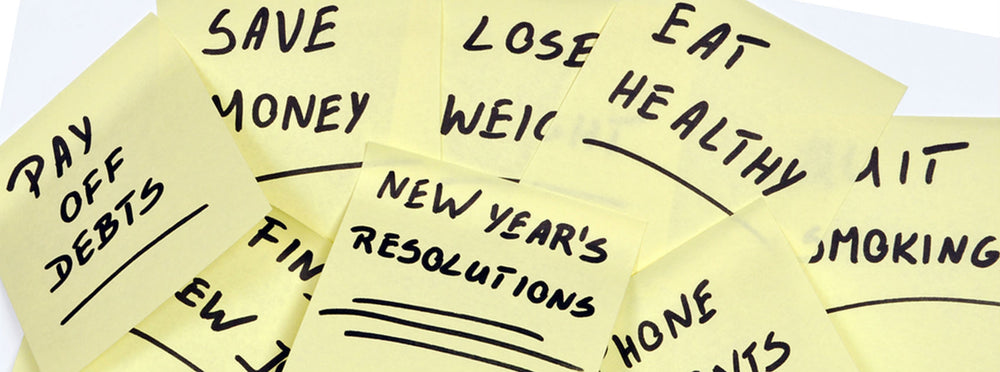 PAY
OFF
DEBTS
SAVE
MONEY
LOSE
WEIG
EAT
HEALTHY
UIT
SMOKING
NEW YEAR'S
RESOLUTIONS
FIN
EW
J
HONE
NTS